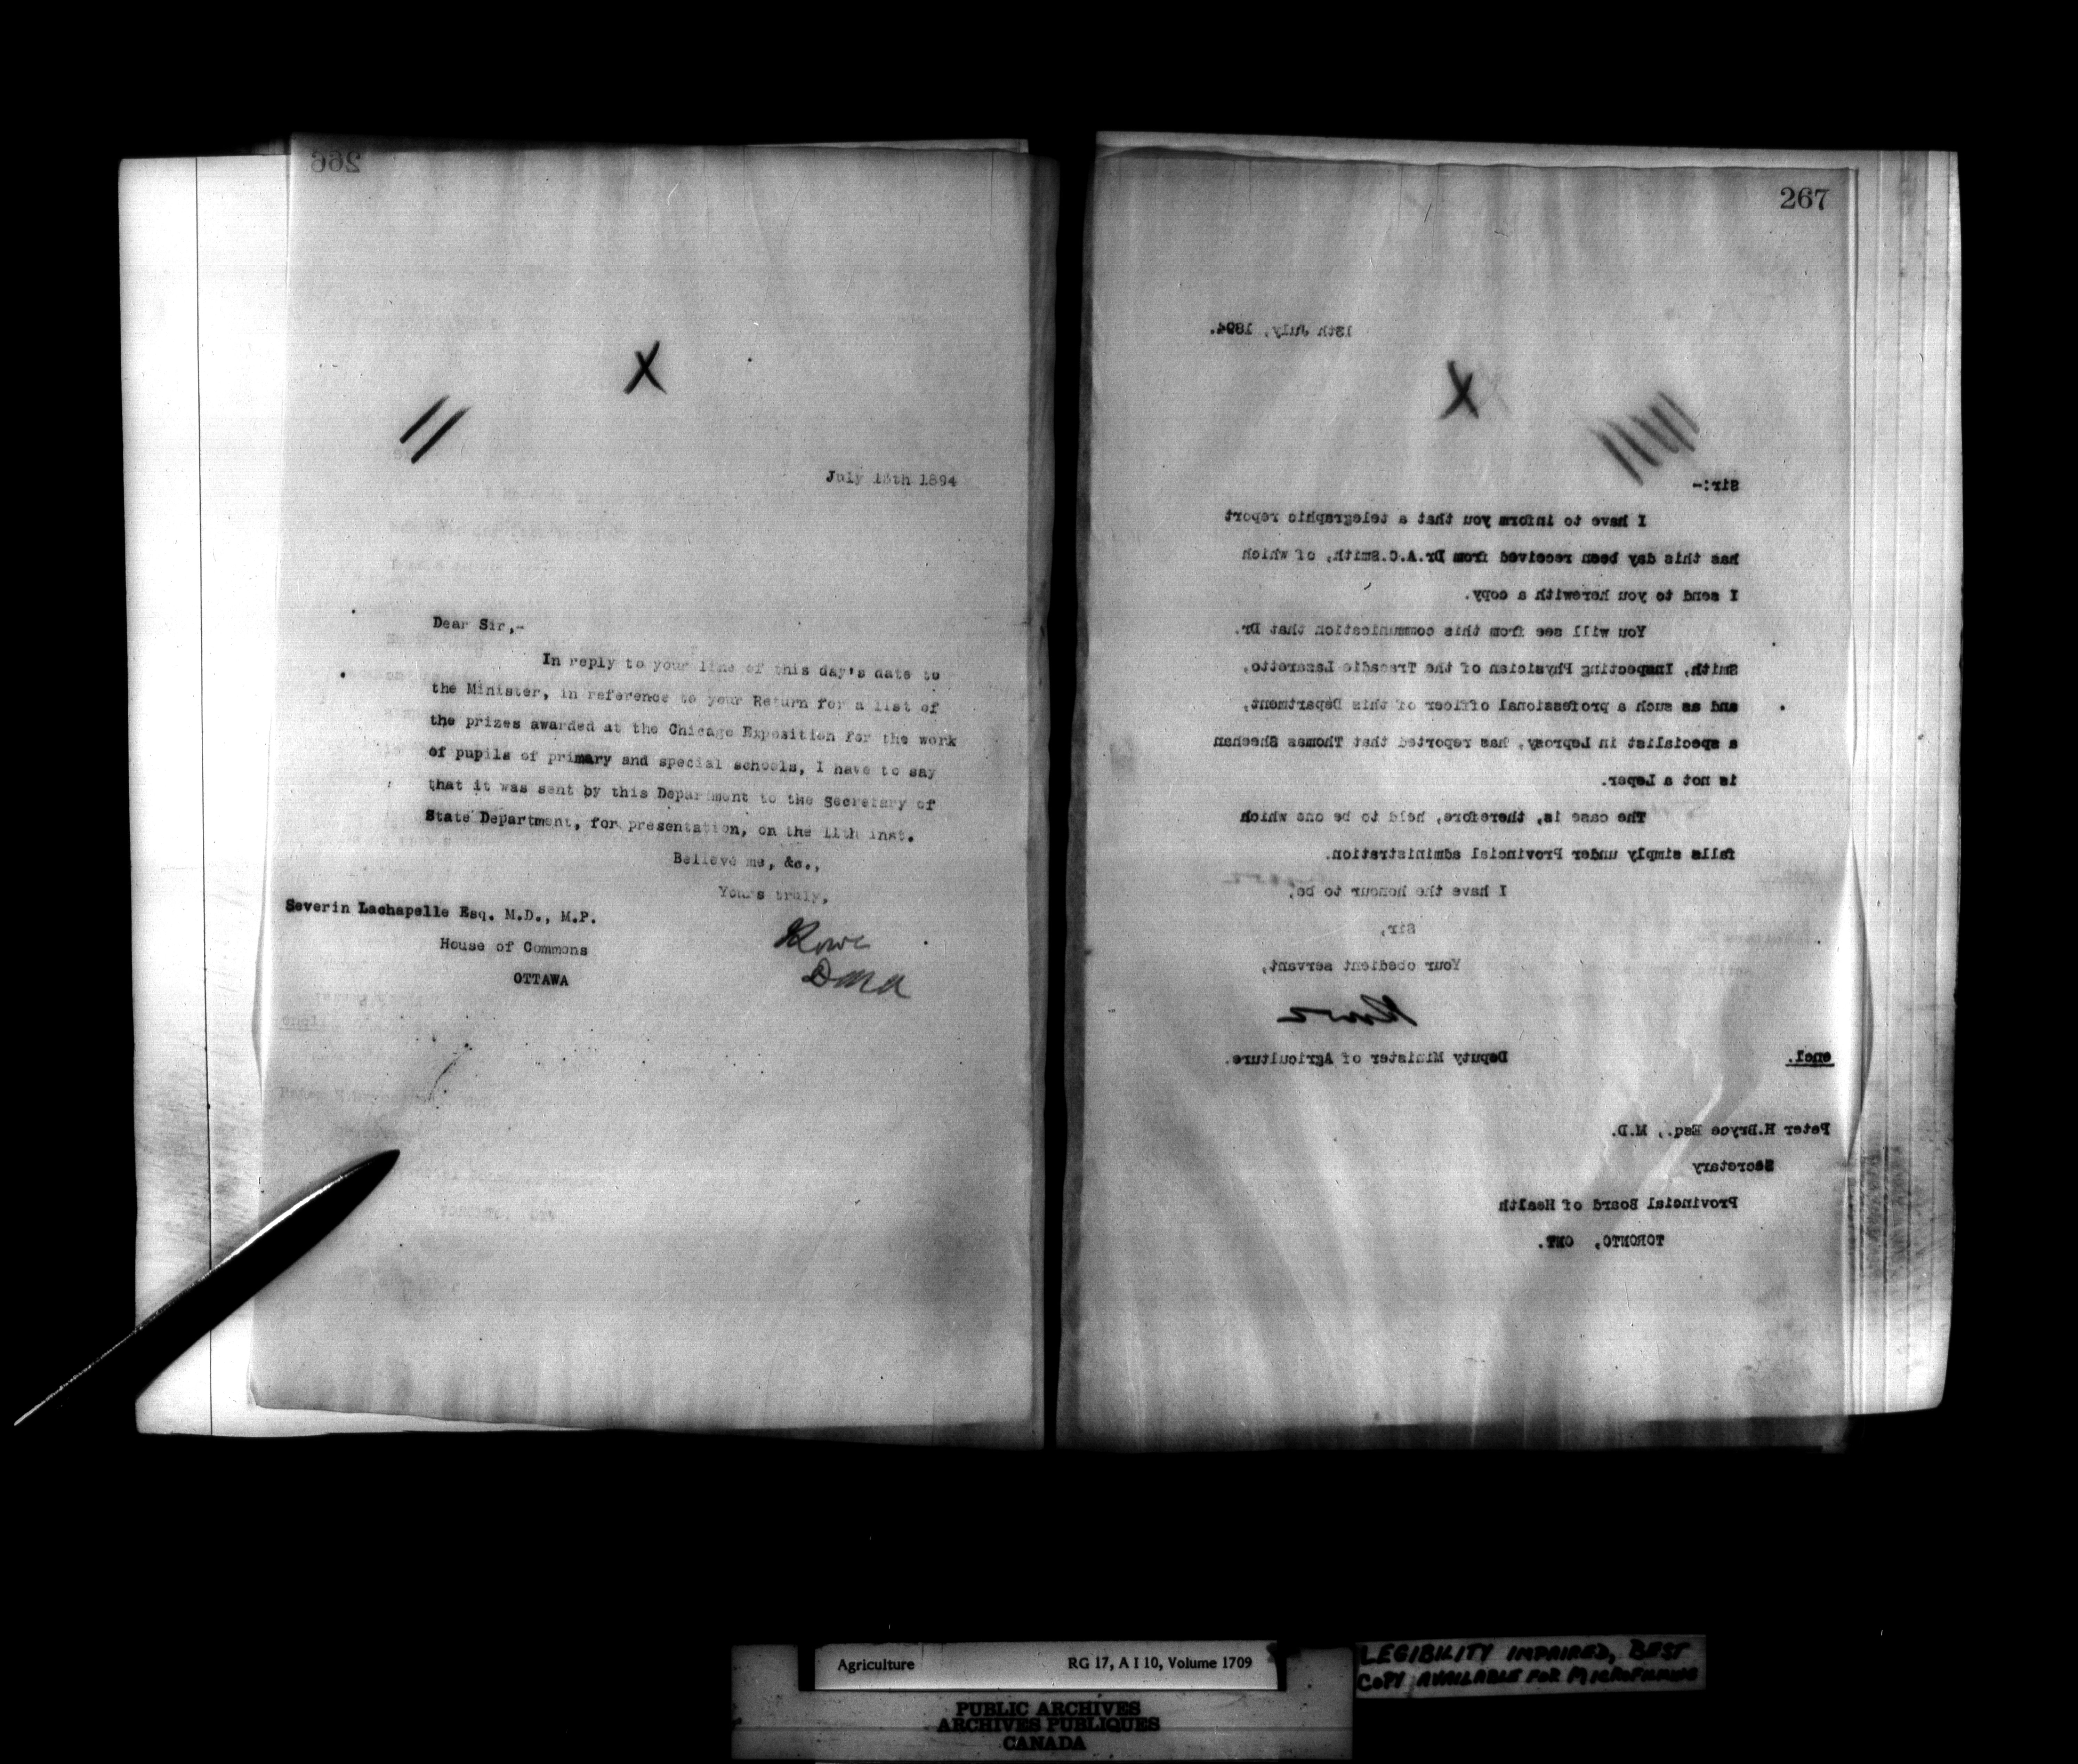 266
X
July 13th 1894
Dear Sir,-
In reply to your line of this day's date to
the Minister, in reference to your Return for a list of
the prizes awarded at the Chicago Exposition for the work
of pupils of primary and special schools, I have to say
that it was sent by this Department to the Secretary of
State Department, for presentation, on the 11th inst.
Believe me, &c.,
Yours truly,
Severin Lachapelle Esq. M.D., M.P.
House of Commons
OTTAWA
267
13th July, 1894.
X
Sir:-
I have to inform you that a telegraphic report
has this day been received from Dr.A.C.Smith, of which
I send to you herewith a copy.
You will see from this communication that Dr.
Smith, Inspecting Physician of the Tracadie Lazaretto,
and as such a professional officer of this Department,
a specialist in Leprosy, has reported that Thomas Sheehan
is not a Leper.
The case is, therefore, held to be one which
falls simply under Provincial administration.
I have the honour to be,
Sir,
Your obedient servant,
Deputy Minister of Agriculture.
encl.
Peter H.Bryce Esq., M.D.
Secretary
Provincial Board of Health
TORONTO, ONT.
Agriculture RG 17, A I 10, Volume 1709
LEGIBILITY IMPAIRED, BEST
COPY AVAILABLE FOR MICROFILMING
PUBLIC ARCHIVES
ARCHIVES PUBLIQUES
CANADA